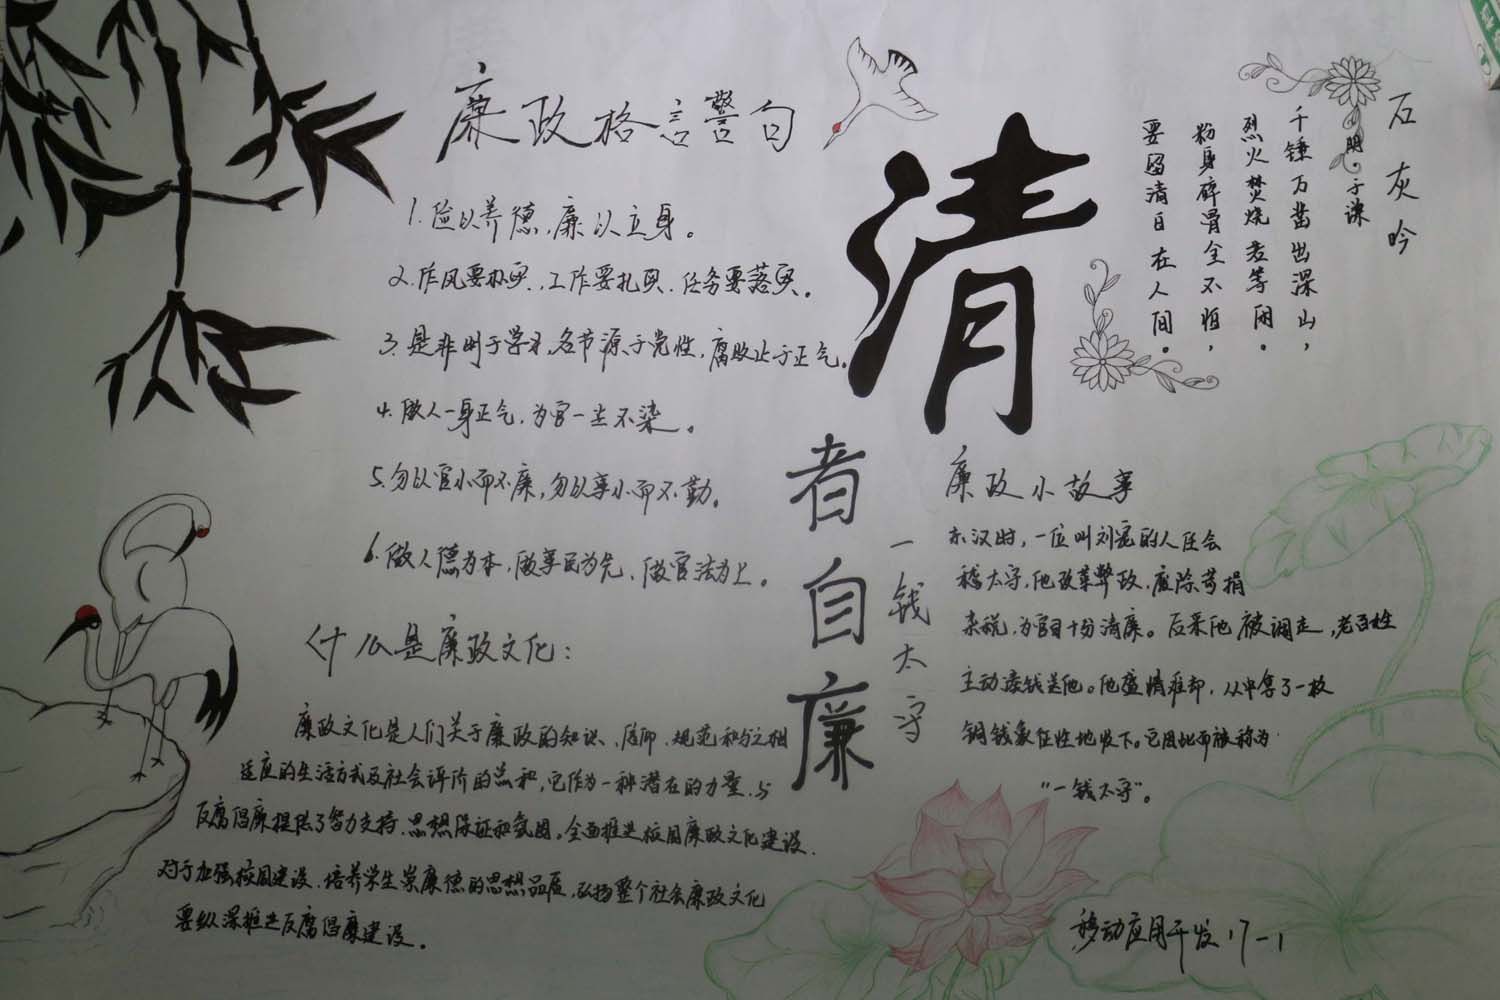 廉政格言警句
1.俭以养德,廉以立身。
2.作风要朴实,工作要扎实,任务要落实。
3.是非明于学习,名节源于党性,腐败止于正气。
4.做人一身正气,为官一尘不染。
5.勿以官小而不廉,勿以事小而不勤。
6.做人德为本,做事民为先,做官法为上。
什么是廉政文化:
廉政文化是人们关于廉政的知识、信仰、规范和与之相
适应的生活方式及社会评价的总和,它作为一种潜在的力量,与
反腐倡廉提供了智力支持、思想保证和氛围。全面推进校园廉政文化建设,
对于加强校园建设、培养学生崇廉德的思想品质,弘扬整个社会廉政文化
要纵深推进反腐倡廉建设。
清
者自廉
石灰吟
明·于谦
千锤万凿出深山,
烈火焚烧若等闲。
粉身碎骨全不怕,
要留清白在人间。
廉政小故事
一钱太守
东汉时,一位叫刘宠的人任会
稽太守,他改革弊政,废除苛捐
杂税,为官十分清廉。后来他被调走,老百姓
主动凑钱送他。他盛情难却,从中拿了一枚
铜钱象征性地收下。它因此而被称为
“一钱太守”。
移动应用开发17-1